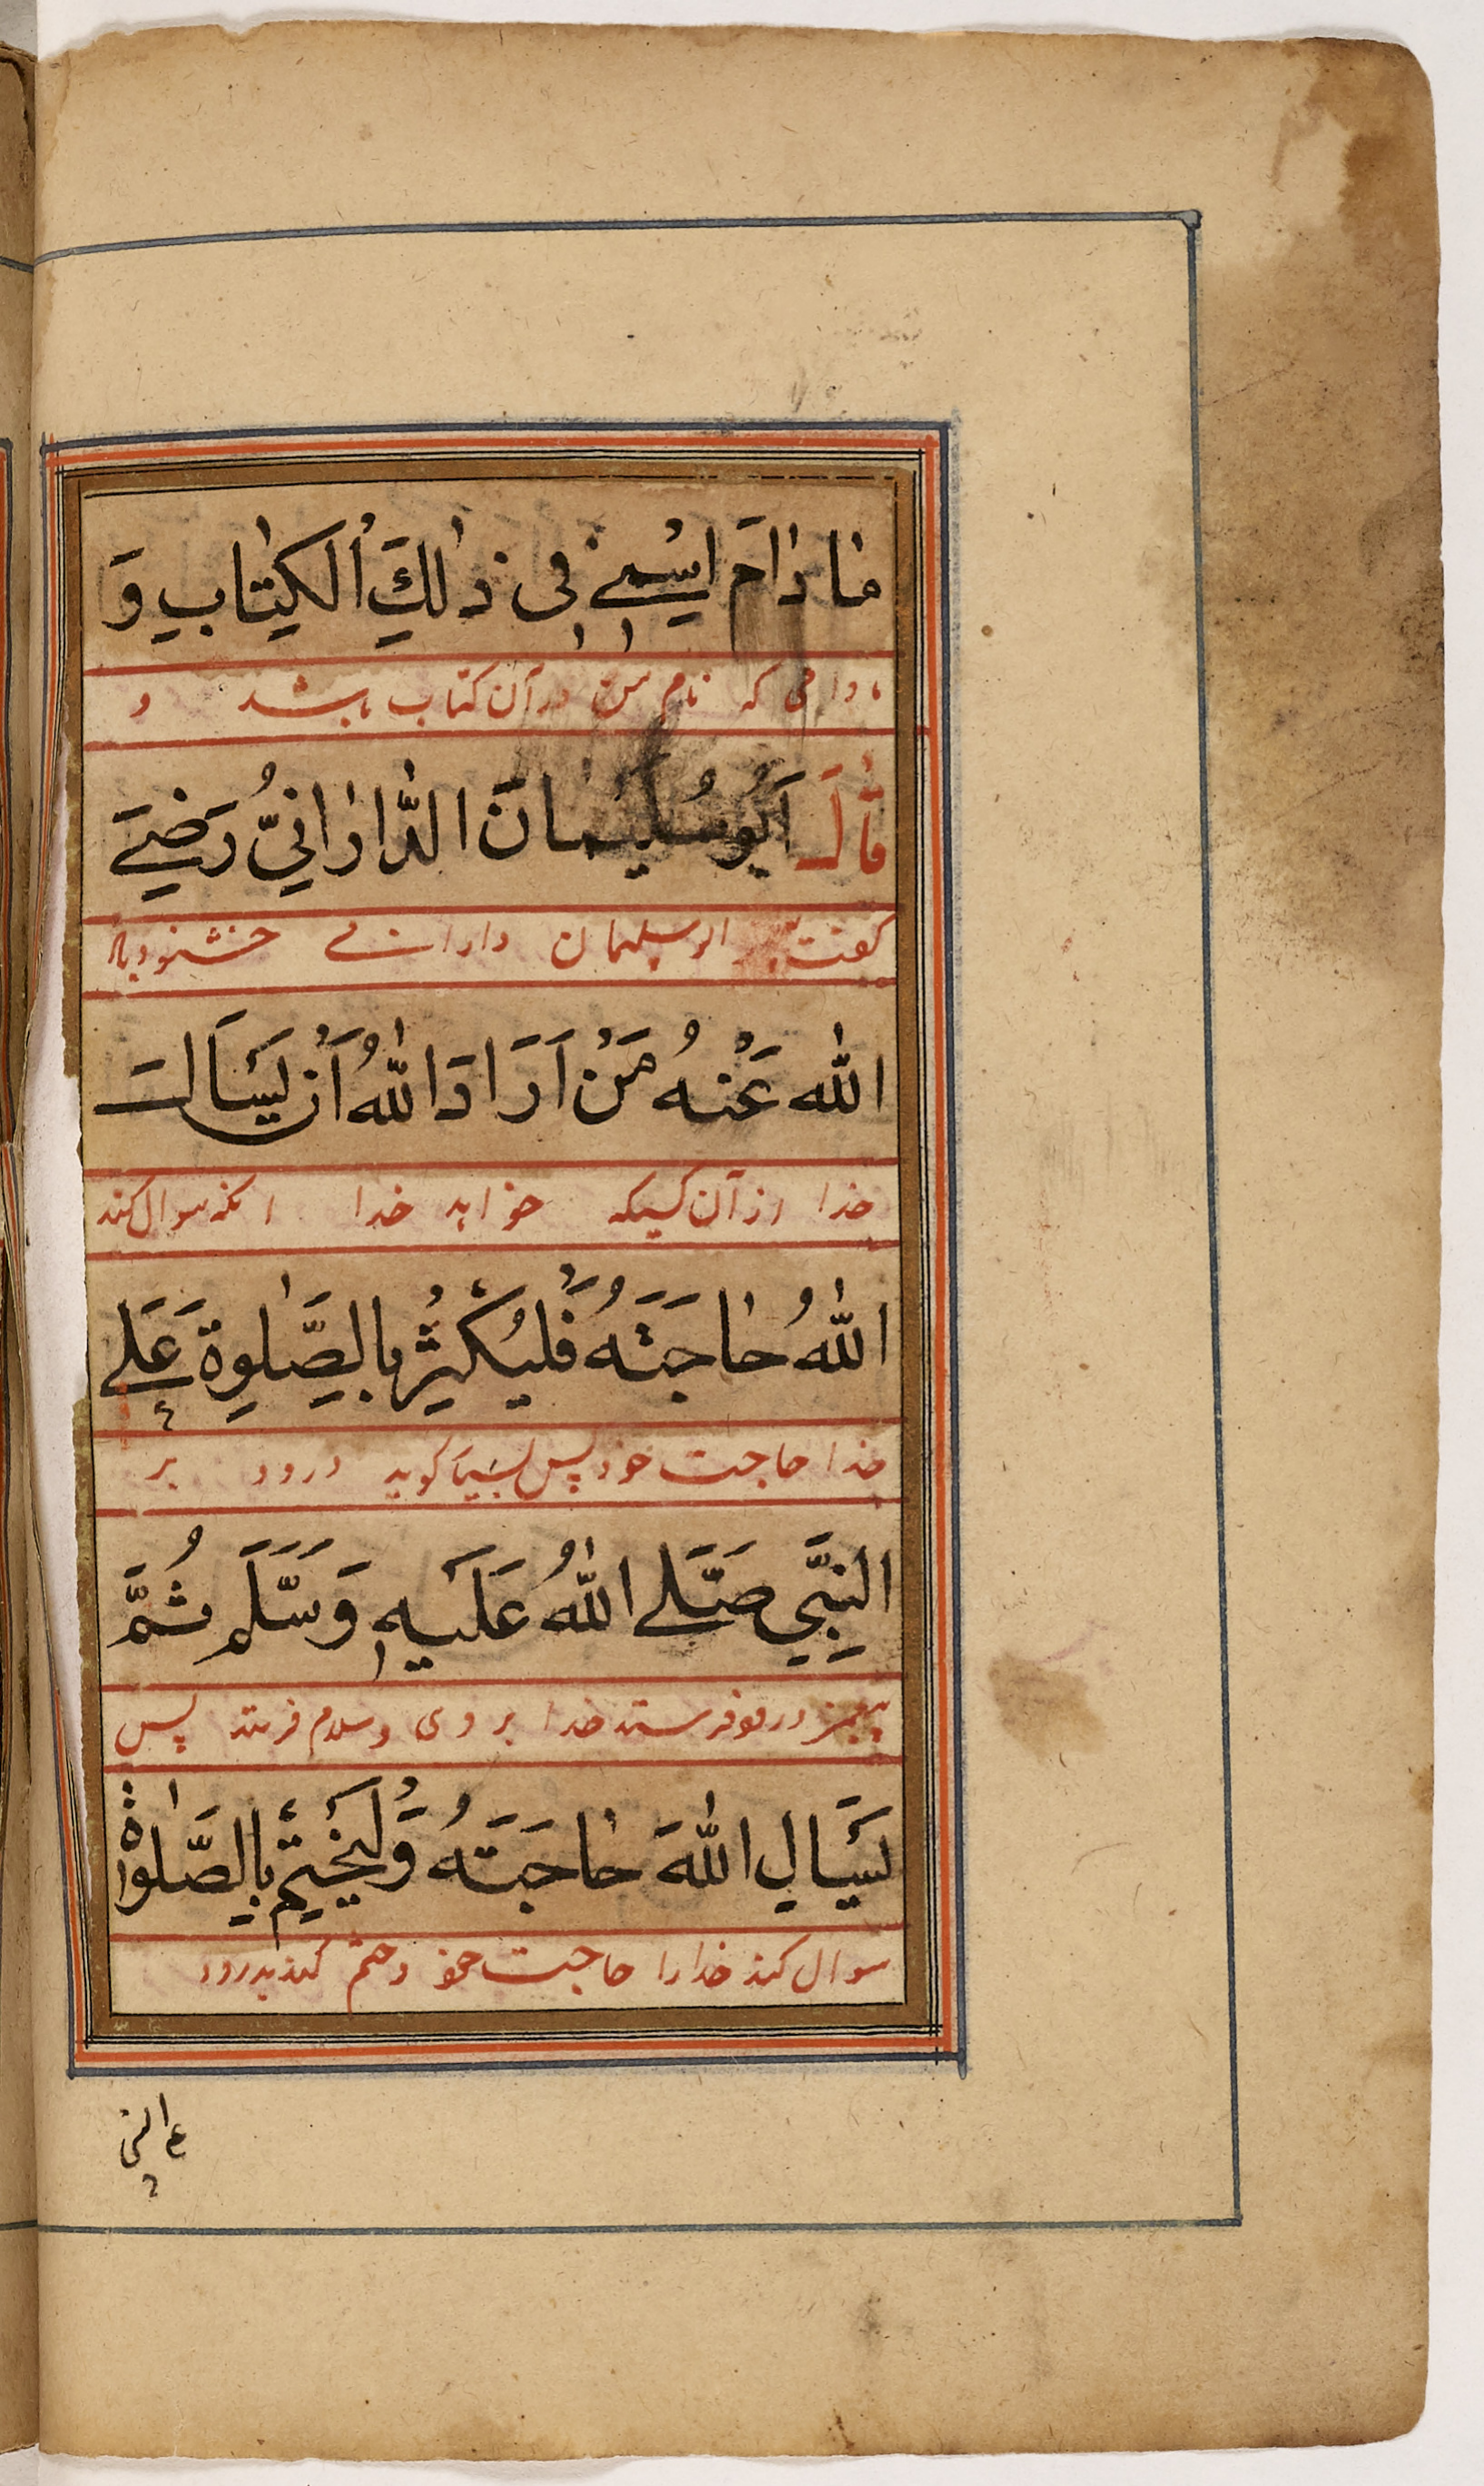 مَا دَامَ اسْمِي فِي ذٰلِكَ الْكِتَابِ وَ
مادامی که نام من در آن کتاب باشد و
قَالَ اَبُو سُلَيْمَانَ الدَّارَانِيُّ رَضِيَ
گفت ابو سلیمان دارانی خشنود باد
اللّٰه عَنْهُ مَنْ اَرَادَ اللّٰهُ اَنْ يَسْاَلَ
خدا از آن کسیکه خواهد خدا انکه سوال کند
اللّٰهُ حَاجَتَهُ فَلْيُكْثِرْ بِالصَّلٰوةِ عَلَى
خدا حاجت خود پس بسیار گوید درود بر
النَّبِيِّ صَلَّى اللّٰهُ عَلَيْهِ وَسَلَّمَ ثُمَّ
درود فرستد خدا بر وی و سلام فرستد پس
يَسْاَلِ اللّٰهَ حَاجَتَهُ وَلْيَخْتِمْ بِالصَّلٰوةِ
سوال کند خدا را حاجت خود و ختم کند بدرود
ع النبی